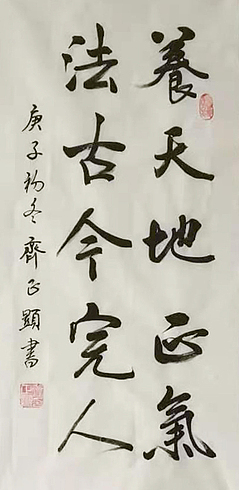 養天地正氣
法古今完人
庚子初冬齊正顯書